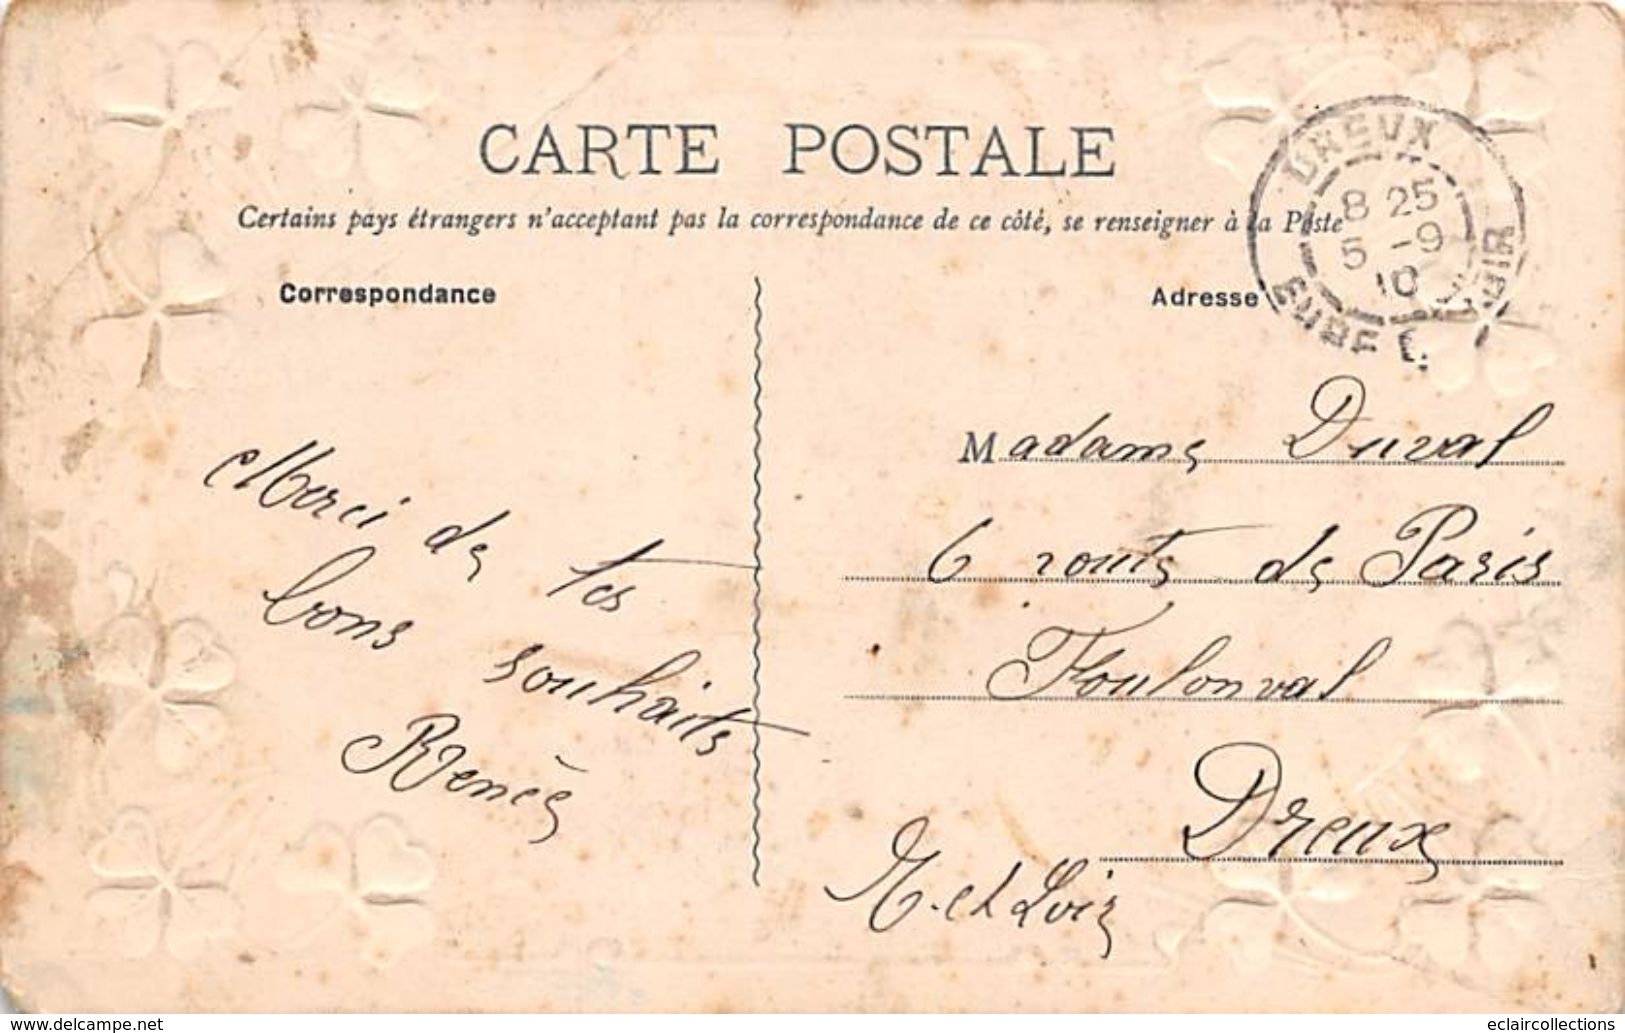 CARTE POSTALE
Certains pays étrangers n'acceptant pas la correspondance de ce côté, se renseigner à la Poste
Correspondance
Merci de tes
bons souhaits
Renée
Adresse
DREUX
8 25
5 -9
10
EURE
Madame Duval
6 route de Paris
Foulonval
Dreux
et Loir
www.delcampe.net
eclaircollections